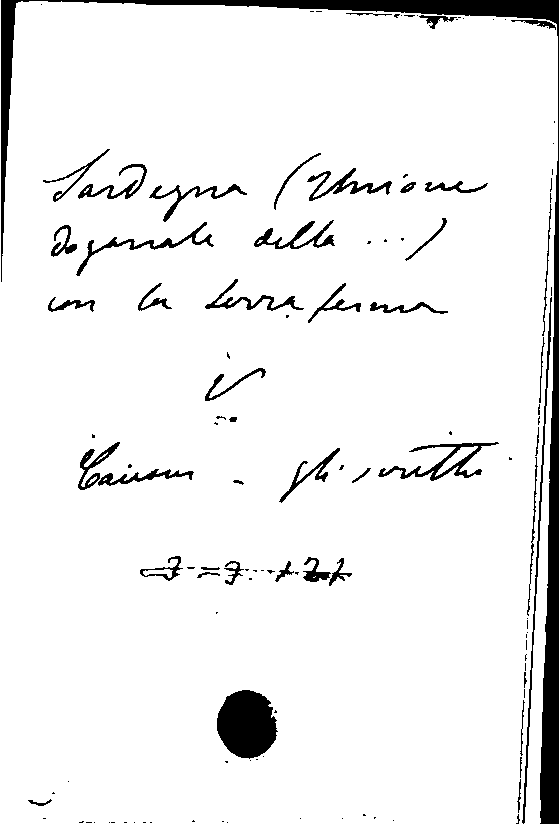 Sardegna (Unione
doganale della ...)
con la terra ferma
V
gli scritti